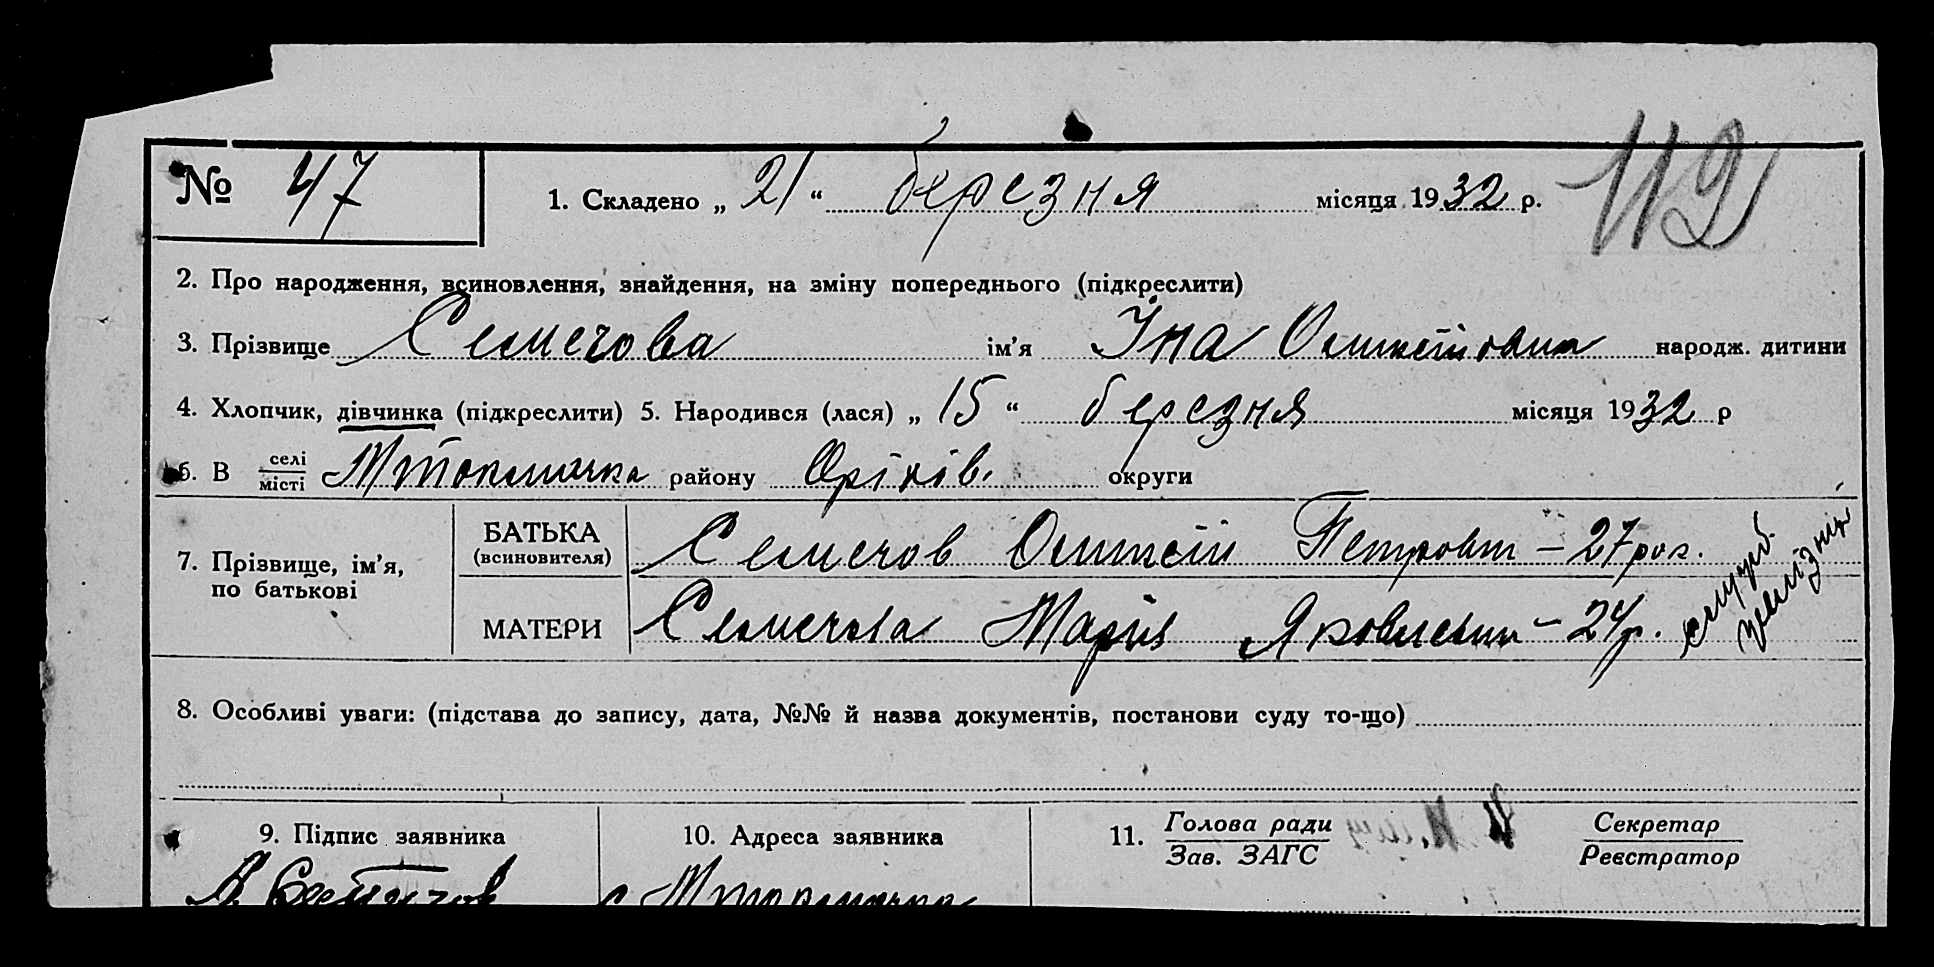 № 47 1. Складено „ 21 “ березня місяця 1932 р. 112
2. Про народження, всиновлення, знайдення, на зміну попереднього (підкреслити)
3. Прізвище Семечова ім’я Іна народж. дитини
4. Хлопчик, дівчинка (підкреслити) 5. Народився (лася) „ 15 “ березня місяця 1932 р
6. В селі місті району Оріхів. округи
7. Прізвище, ім’я, по батькові
БАТЬКА (всиновителя) Семечов Петрович – 27 рок.
МАТЕРИ Семечова Марія Яковлевна – 24 р.
служб. залізниц
8. Особливі уваги: (підстава до запису, дата, №№ й назва документів, постанови суду то-що)
9. Підпис заявника 10. Адреса заявника 11. Голова ради Зав. ЗАГС Секретар Реєстратор